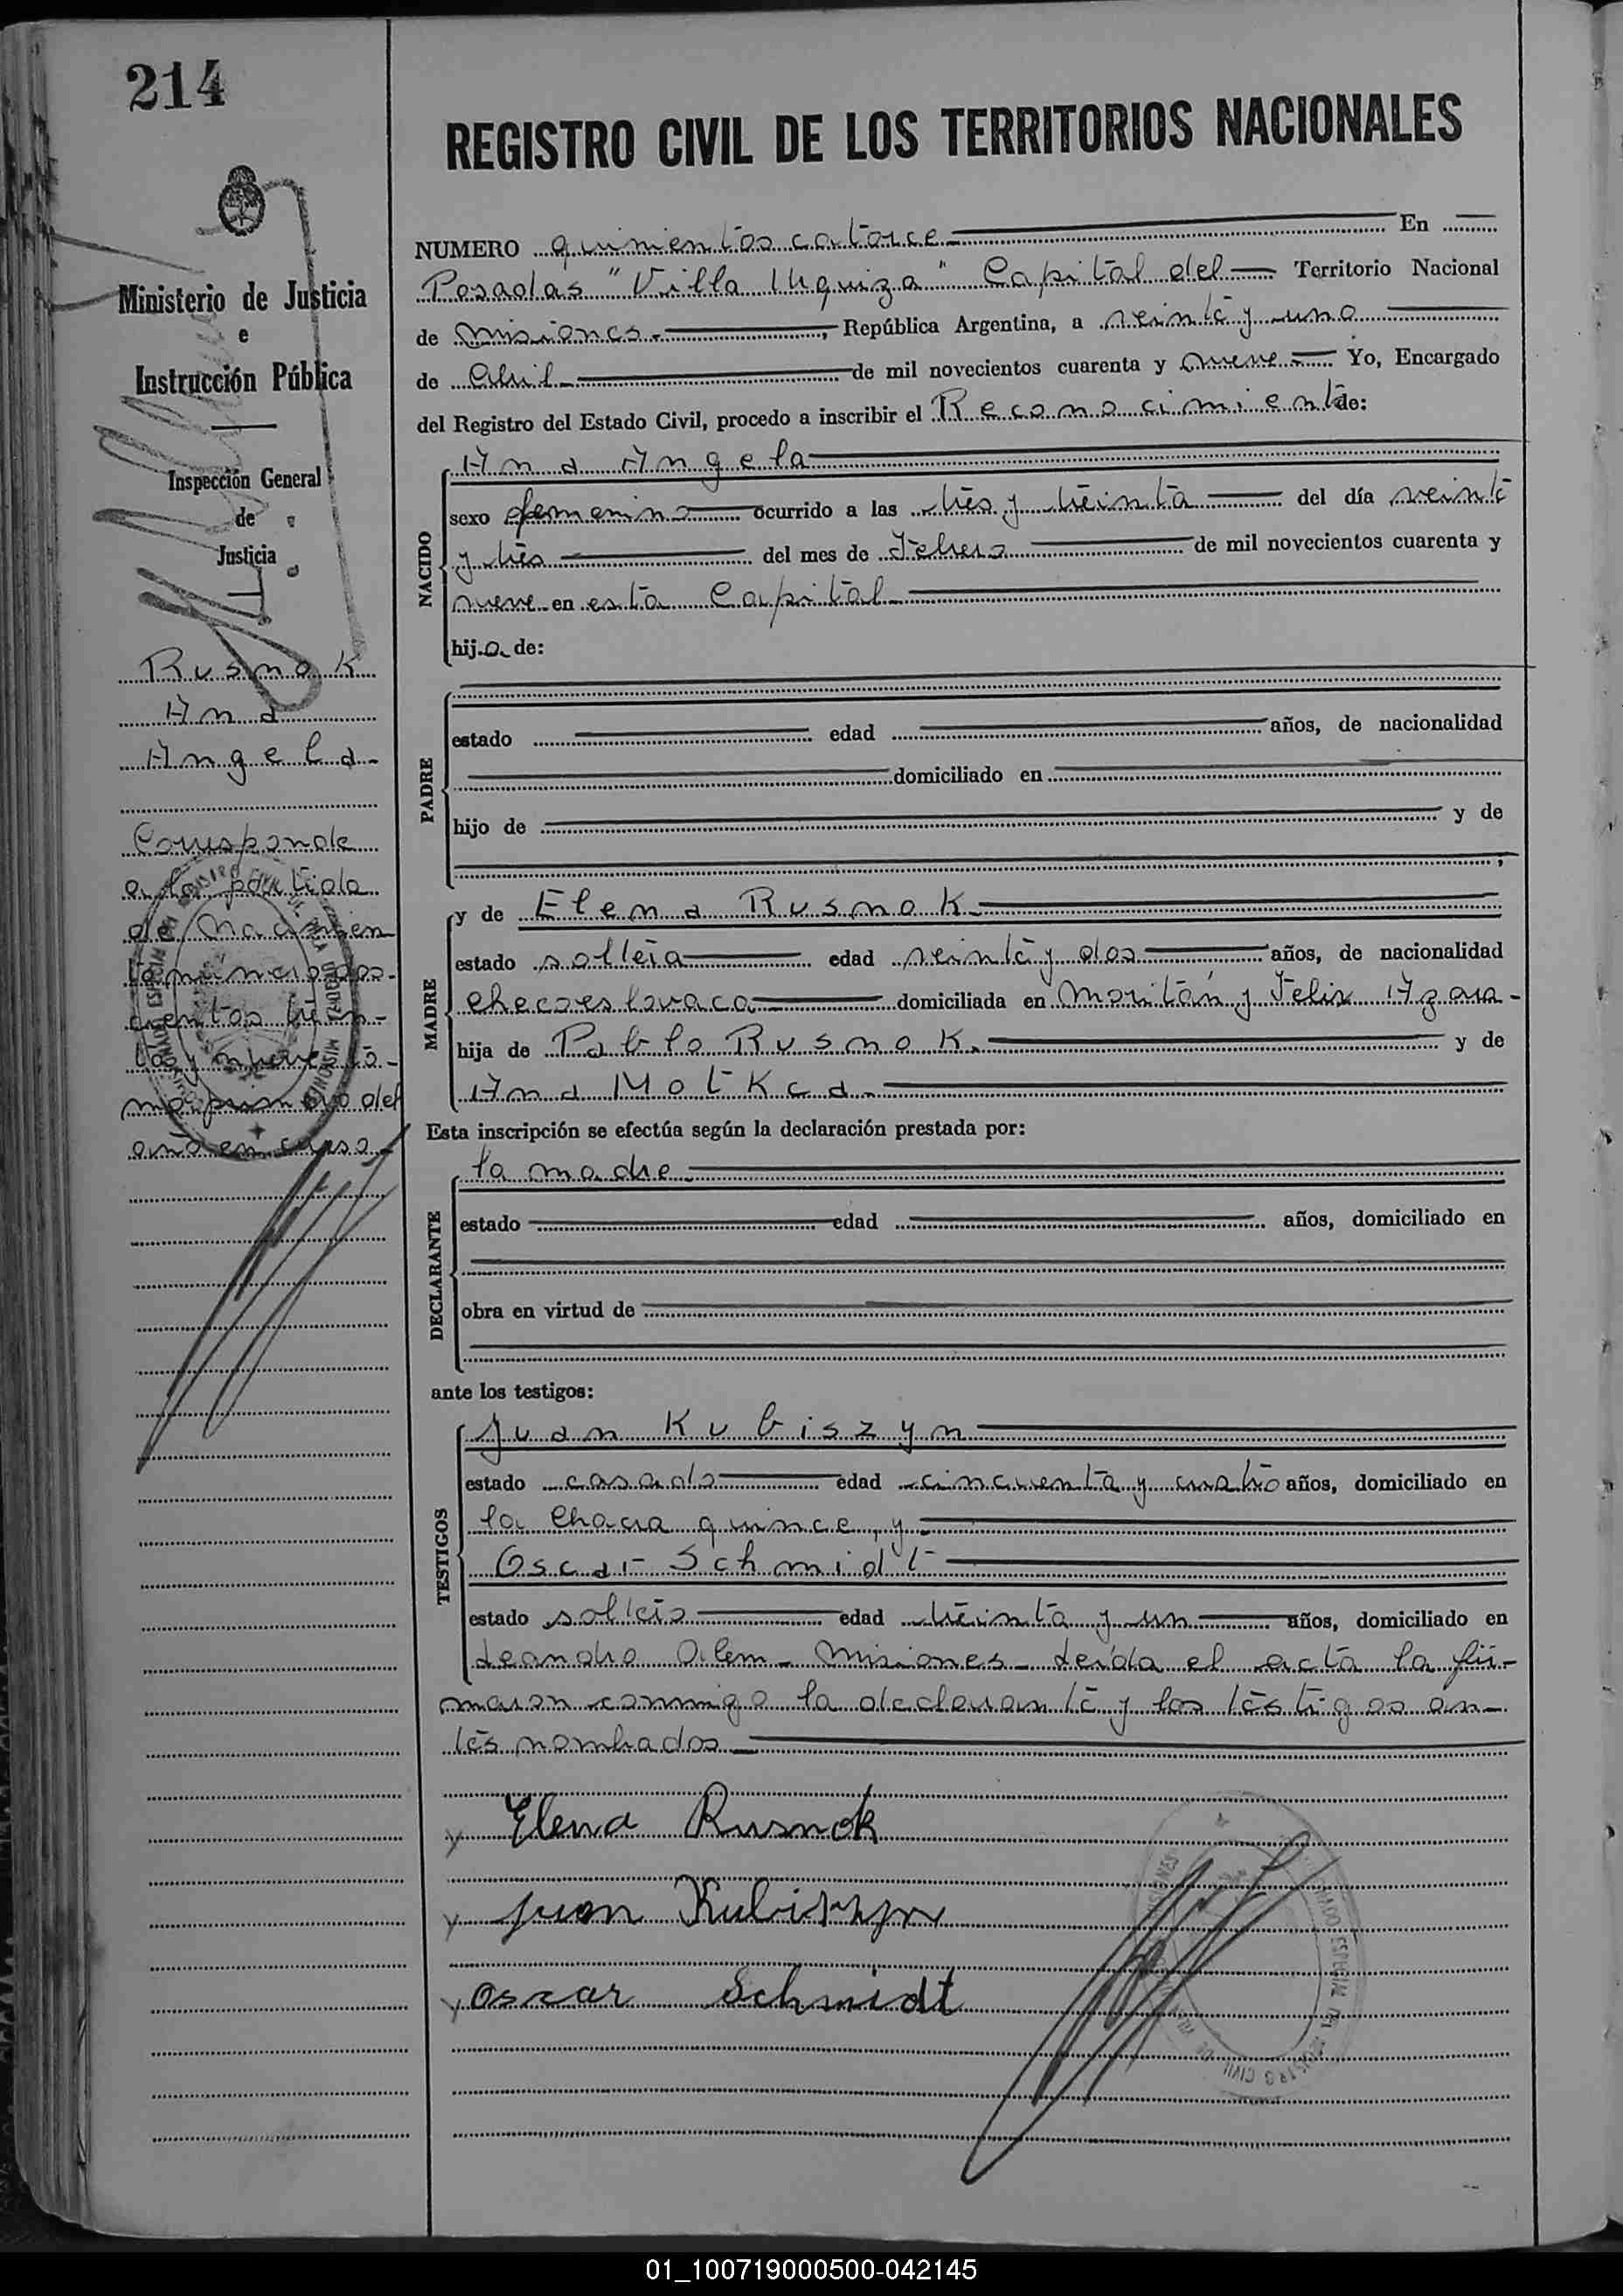 214
REGISTRO CIVIL DE LOS TERRITORIOS NACIONALES
Ministerio de Justicia
e
Instrucción Pública
Inspección General
de
Justicia
Rusnok
Ana
Angela-
Corresponde
a la partida
de Nacimien
to número dos-
cientos trein-
ta y nueve to-
mo primero del
año en curso-
NUMERO quinientos catorce- En
Posadas "Villa Urquiza" Capital del Territorio Nacional
de Misiones-, República Argentina, a veinte y uno
de Abril- de mil novecientos cuarenta y nueve- Yo, Encargado
del Registro del Estado Civil, procedo a inscribir el Reconocimiento de:
NACIDO
Ana Angela
sexo femenino ocurrido a las tres y treinta del día veinte
y tres del mes de Febrero de mil novecientos cuarenta y
nueve en esta Capital-
hija de:
PADRE
estado edad años, de nacionalidad
domiciliado en
hijo de y de
,
MADRE
y de Elena Rusnok-
estado soltera edad veinte y dos años, de nacionalidad
checoeslovaca domiciliada en Moritán y Felix Azara-
hija de Pablo Rusnok. y de
Ana Motkca-
Esta inscripción se efectúa según la declaración prestada por:
DECLARANTE
la madre-
estado edad años, domiciliado en
obra en virtud de
ante los testigos:
TESTIGOS
Juan Kubiszyn
estado casado edad cincuenta y cuatro años, domiciliado en
la Chacra quince, y-
Oscar Schmidt
estado soltero edad treinta y un años, domiciliado en
Leandro Alem- Misiones- Leída el acta la fir-
maron conmigo la declarante y los testigos an-
tes nombrados-
Elena Rusnok
Juan Kubiszyn
Oscar Schmidt
01_100719000500-042145